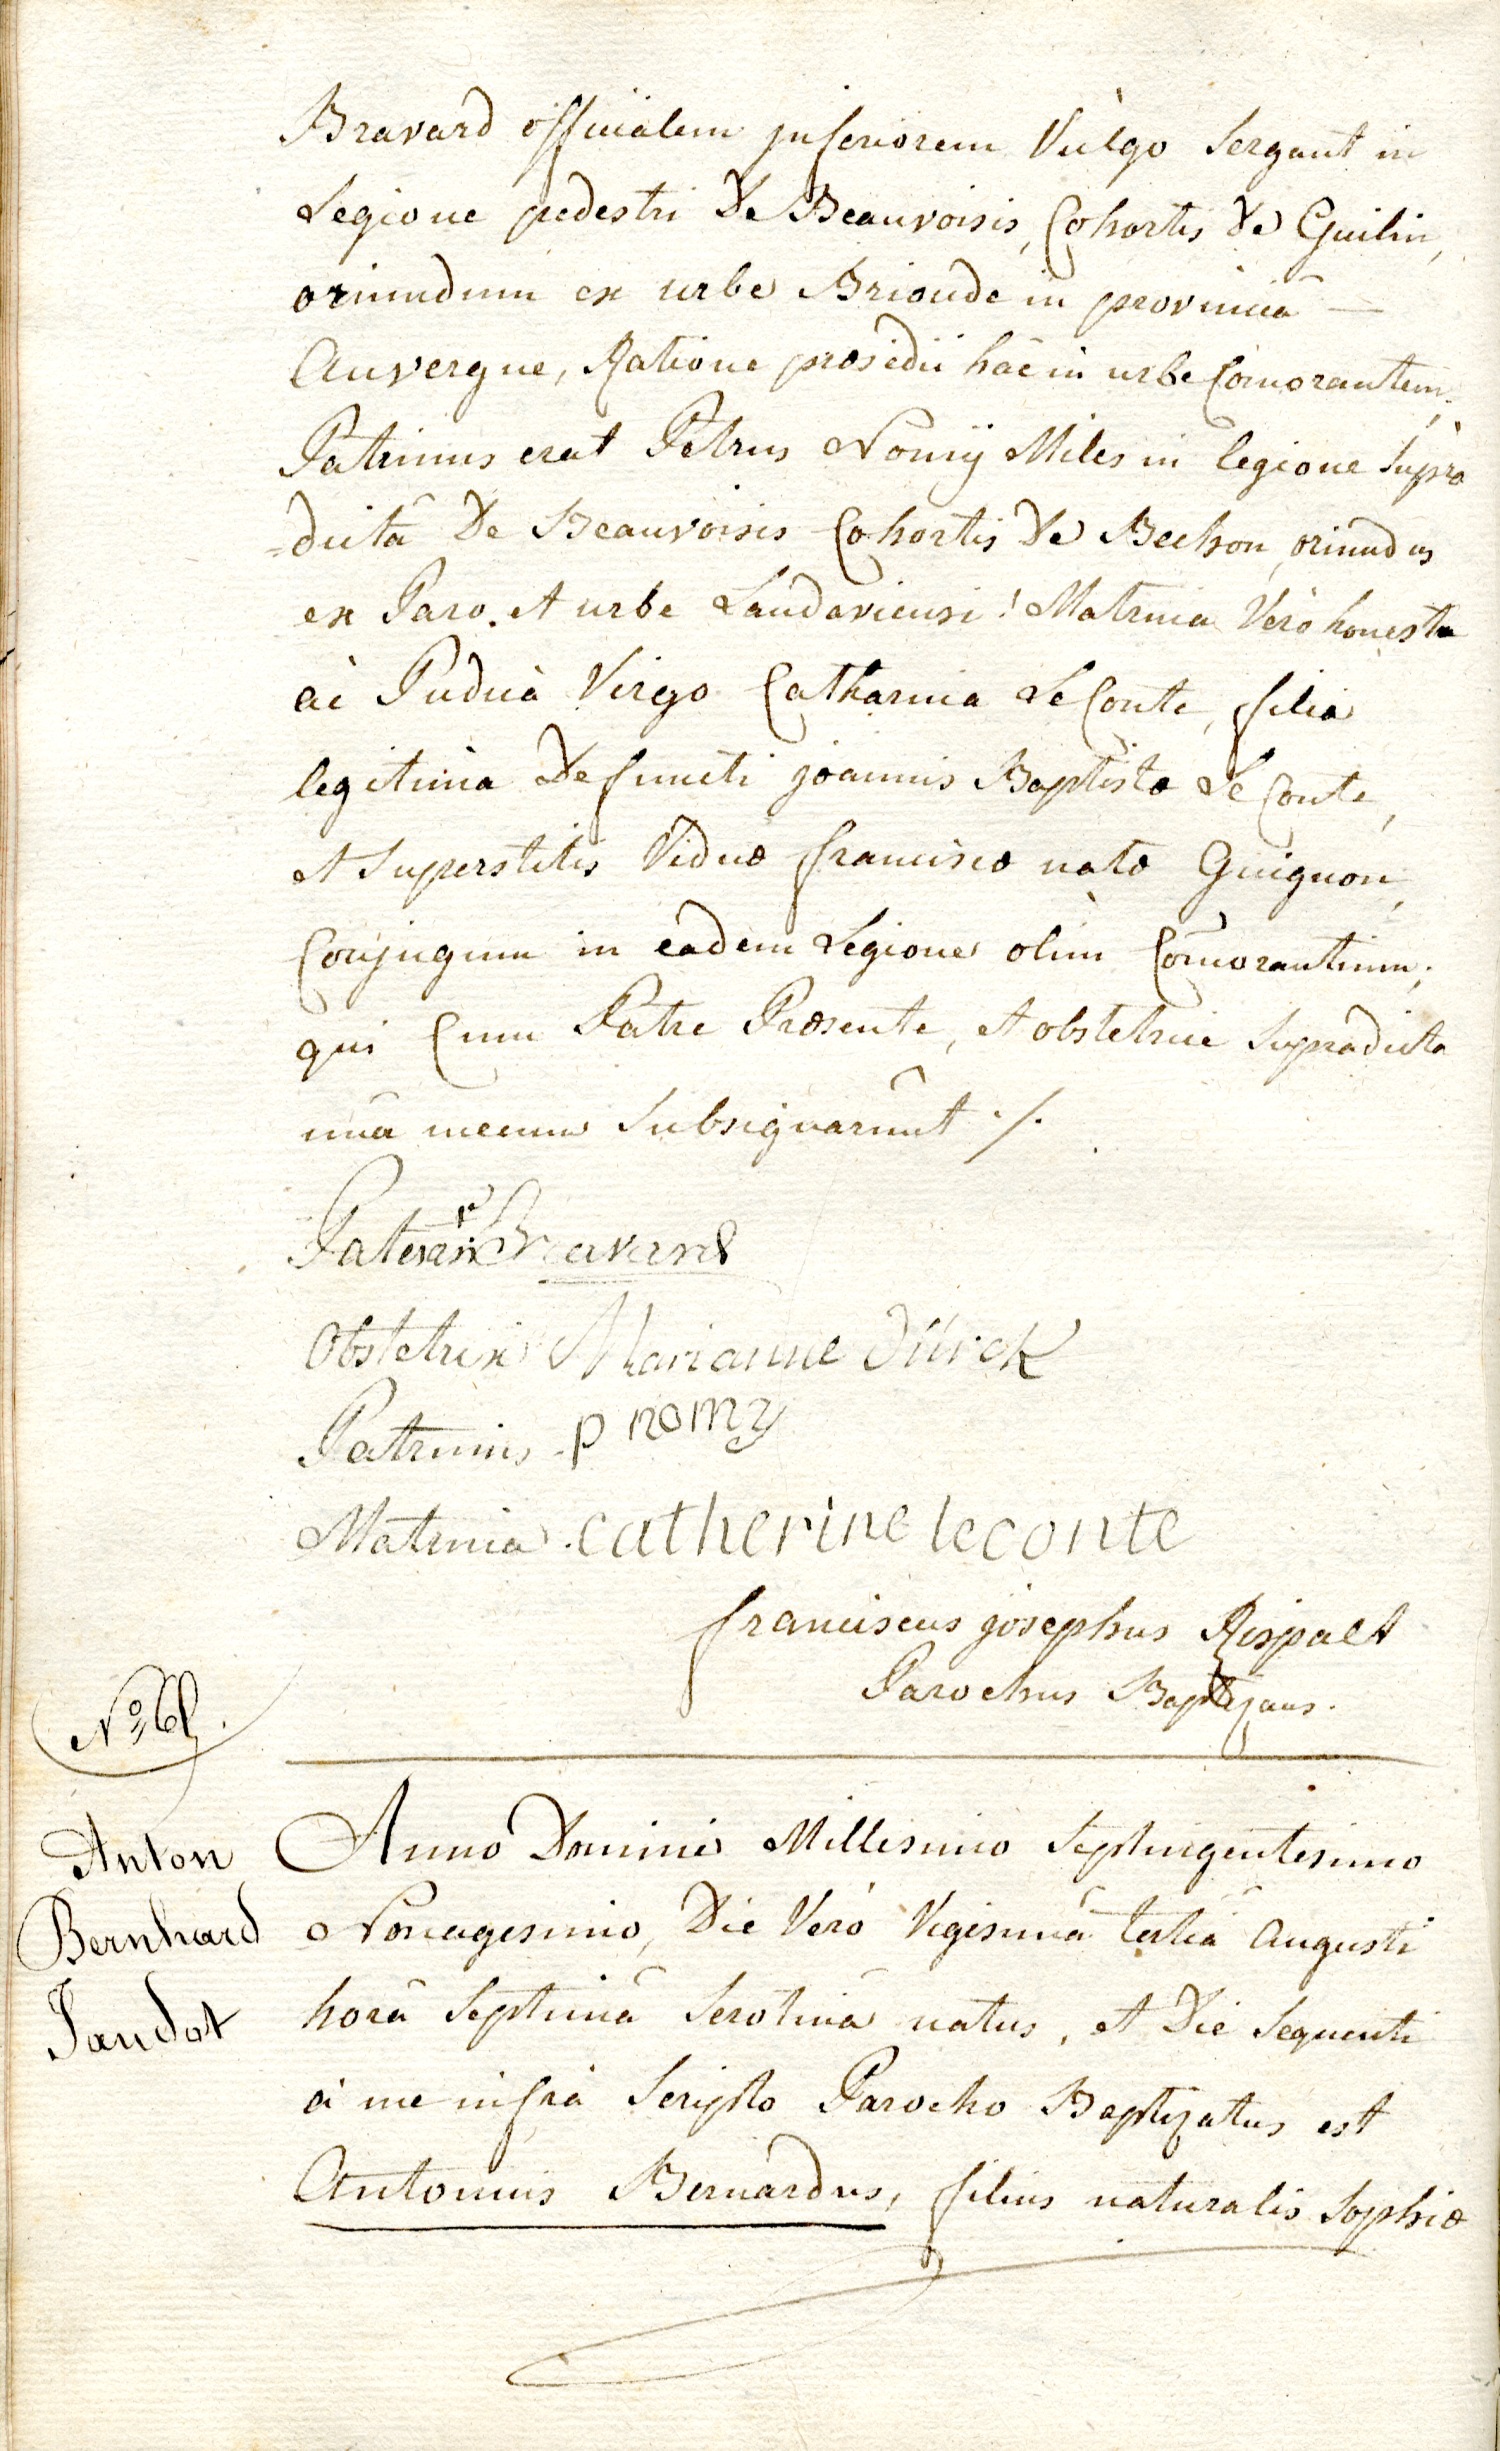 Bravard officialem inferiorem Vulgo Sergant in
Legione pedestri De Beauvoisis, Cohortis De Guilin,
oriundum ex urbe Brioude in provinciâ —
Auvergne, Ratione præsedii hâc in urbe Comorantem,
Patrinus erat Petrus Nomÿ Miles in legione supra
=dictâ De Beauvoisis Cohortis De Bechon, oriundus
ex Paro. et urbe Landaviensi! Matrina Verò honesta
ac Pudica Virgo Catharina LeConte, filia
legitima Defuncti joannis Baptistæ LeConte,
et Superstitis Viduæ franciscæ natæ Guignon,
Conjugum in eadem Legione olim Comorantium;
qui Cum Patre Præsente, et obstetrice Supradicta
unâ mecum Subsignarunt ./.
Pater Bravard
Obstetrix Marianne Dürck
Patrinus p nomy
Matrina catherine leconte
franciscus josephus Rispalt
Parochus Baptizans.
Nº 61.
Anton
Bernhard
Jandot
Anno Domini Millesimo Septingentesimo
Nonagesimo, Die Verò Vigesimâ tertiâ Augusti
horâ Septimâ Serotinâ natus, et Die Sequenti
à me infrà Scripto Parocho Baptizatus est
Antonius Bernardus, filius naturalis Sophiæ